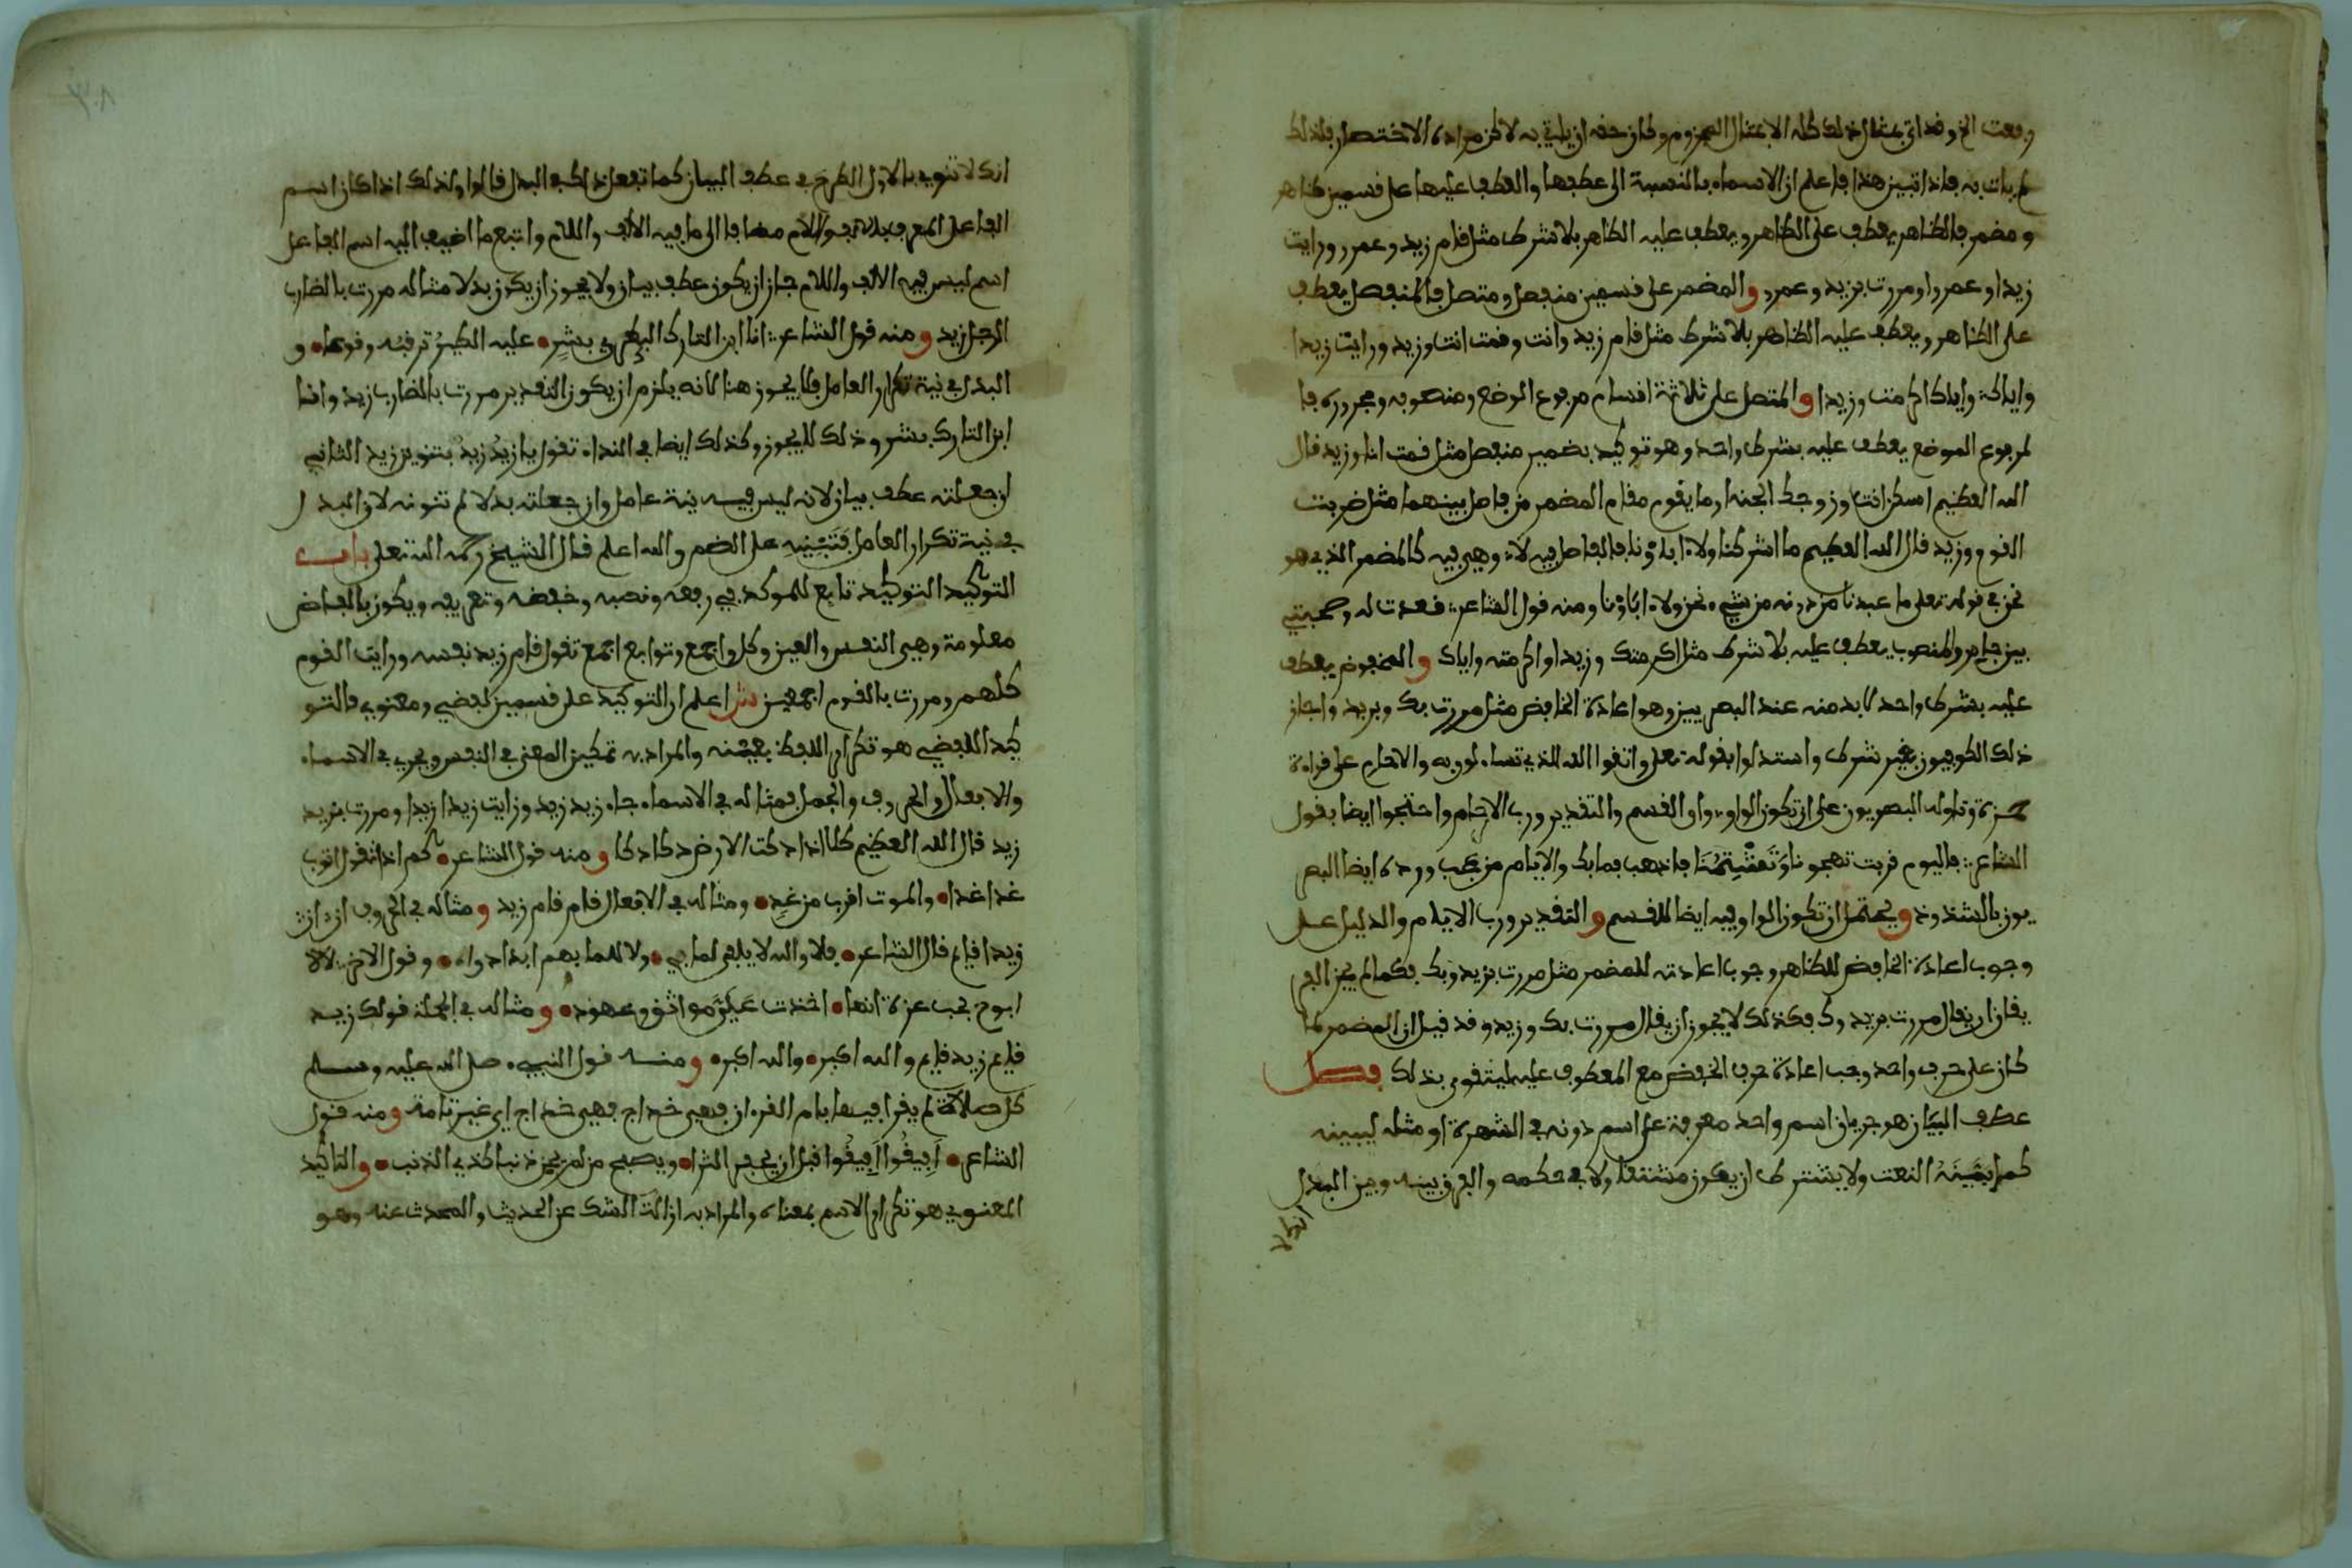 رفعت الخ وقد اتى بمثال ذلك كله الا مثال المجزوم وكان حقه ان ياتي به لاكن مراده الاختصار فلذلك
لم يات به فاذا تبين هذا فاعلم ان الاسماء بالنسبة الى عطفها والعطف عليها على قسمين ظاهر
ومضمر فالظاهر يعطف على الظاهر ويعطف عليه الظاهر بلا شرط مثل قام زيد وعمرو ورايت
زيدا وعمروا ومررت بزيد وعمرو والمضمر على قسمين منفصل ومتصل فالمنفصل يعطف
على الظاهر ويعطف عليه الظاهر بلا شرط مثل قام زيد وانت وقمت انت وزيد ورايت زيدا
واياك واياك اكرمت وزيدا والمتصل على ثلاثة اقسام مرفوع الموضع ومنصوبه ومجروره فا
لمرفوع الموضع يعطف عليه بشرط واحد وهو توكيد بضمير منفصل مثل قمت انا وزيد قال
الله العظيم اسكن انت وزوجك الجنة او ما يقوم مقام المضمر من فاصل بينهما مثل ضربت
القوم وزيد قال الله العظيم ما اشركنا ولا ءاباؤنا فالفاصل فيه لا وهي فيه كالمضمر الذي هو
نحن في قوله تعلى ما عبدنا من دونه من شيء نحن ولا ءاباؤنا ومنه قول الشاعر قعدت له وصحبتي
بين جامر والمنصوب يعطف عليه بلا شرط مثل اكرمتك وزيدا واكرمته واياك والمخفوض يعطف
عليه بشرط واحد لا بد منه عند البصريين وهو اعادة الخافض مثل مررت بك وبزيد واجاز
ذلك الكوفيون بغير شرط واستدلوا بقوله تعلى واتقوا الله الذي تساءلون به والارحام على قراءة
حمزة وتاوله البصريون على ان تكون الواو واو القسم والتقدير ورب الارحام واحتجوا ايضا بقول
الشاعر فاليوم قربت تهجونا وتشتمنا فاذهب فما بك والايام من عجب ورده ايضا البصر
يون بالشذوذ ويحتمل ان تكون الواو فيه ايضا للقسم والتقدير ورب الايام والدليل على
وجوب اعادة الخافض للظاهر وجوب اعادته للمضمر مثل مررت بزيد وبك فكما لم يجز الفر
يقان ان يقال مررت بزيد وك فكذلك لا يجوز ان يقال مررت بك وزيد وقد قيل ان المضمر لما
كان على حرف واحد وجب اعادة حرف الخفض مع المعطوف عليه ليتقوى بذلك فصل
عطف البيان هو جريان اسم واحد معرفة على اسم دونه في الشهرة او مثله ليبينه
كما يبينه النعت ولا يشترط ان يكون مشتقا ولا في حكمه والفرق بينه وبين البدل
انك لا
انك لا تنوي بالاول الطرح في عطف البيان كما تفعل ذلك في البدل قالوا ولذلك اذا كان اسم
الفاعل المعرف بالالف واللام مضافا الى ما فيه الالف واللام واتبع ما اضيف اليه اسم الفاعل
اسم ليس فيه الالف واللام جاز ان يكون عطف بيان ولا يجوز ان يكون بدلا مثاله مررت بالضارب
الرجل زيد ومنه قول الشاعر انا ابن التارك البكري بشر عليه الطير ترقبه وقوعا و
البدل في نية تكرار العامل فلا يجوز هنا لانه يلزم ان يكون التقدير مررت بالضارب زيد وانا
ابن التارك بشر وذلك لا يجوز وكذلك ايضا في النداء تقول يا زيد زيد بتنوين زيد الثاني
ان جعلته عطف بيان لانه ليس فيه نية عامل وان جعلته بدلا لم تنونه لان البدل
في نية تكرار العامل فتبنيه على الضم والله اعلم قال الشيخ رحمه الله تعلى باب
التوكيد التوكيد تابع للموكد في رفعه ونصبه وخفضه وتعريفه ويكون بالفاظ
معلومة وهي النفس والعين وكل واجمع وتوابع اجمع تقول قام زيد نفسه ورايت القوم
كلهم ومررت بالقوم اجمعين ش اعلم ان التوكيد على قسمين لفظي ومعنوي فالتو
كيد اللفظي هو تكرار اللفظ بعينه والمراد به تمكين المعنى في النفس ويجري في الاسماء
والافعال والحروف والجمل فمثاله في الاسماء جاء زيد زيد ورايت زيدا زيدا ومررت بزيد
زيد قال الله العظيم كلا اذا دكت الارض دكا دكا ومنه قول الشاعر كم اذا تقول اتوب
غدا غدا والموت اقرب من غد ومثاله في الافعال قام قام زيد ومثاله في الحروف ان ان
زيدا قايم قال الشاعر فلا والله لا يلفى لما بي ولا للما بهم ابدا دواء وقول الاخر لا لا
ابوح بحب عزة انها اخذت علي مواثق وعهود ومثاله في الجملة قولك زيد
قايم زيد قايم والله اكبر والله اكبر ومنه قول النبيء صلى الله عليه وسلم
كل صلاة لم يقرا فيها بام القرءان فهي خداج فهي خداج اي غير تامة ومنه قول
الشاعر افيقوا افيقوا قبل ان يحفر الثرا ويصبح من لم يجن ذنبا كذي الذنب والتاكيد
المعنوي هو تكرار الاسم بمعناه والمراد به ازالة الشك عن الحديث والمحدث عنه وهو